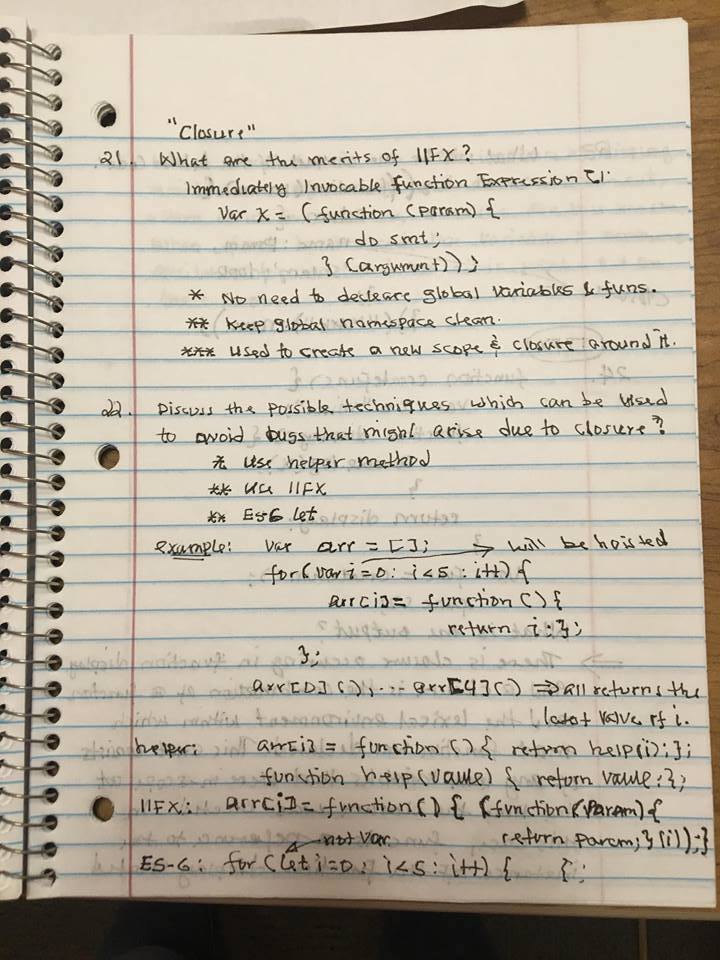 "Closure"
21. What are the merits of IIFX?
Immediately Invocable Function Expression
Var X = (function (param) {
do smt;
} (argument));
* No need to decleare global variables & funs.
** Keep global namespace clean.
*** Used to create a new scope & closure around it.
22. Discuss the possible techniques which can be used
to avoid bugs that might arise due to closure?
* Use helper method
** Use IIFX
** ES-6 let
example: Var arr = []; → will be hoisted
for(var i=0; i<5; i++) {
arr[i]= function () {
return i;};
};
arr[0](), ... arr[4]() => all returns the
latest value of i.
helper: arr[i] = function () { return help(i);};
function help(value) { return value;};
IIFX: arr[i] = function() { (function(param) {
return param;} (i));}
not var
ES-6: for (let i=0; i<5; i++) { };